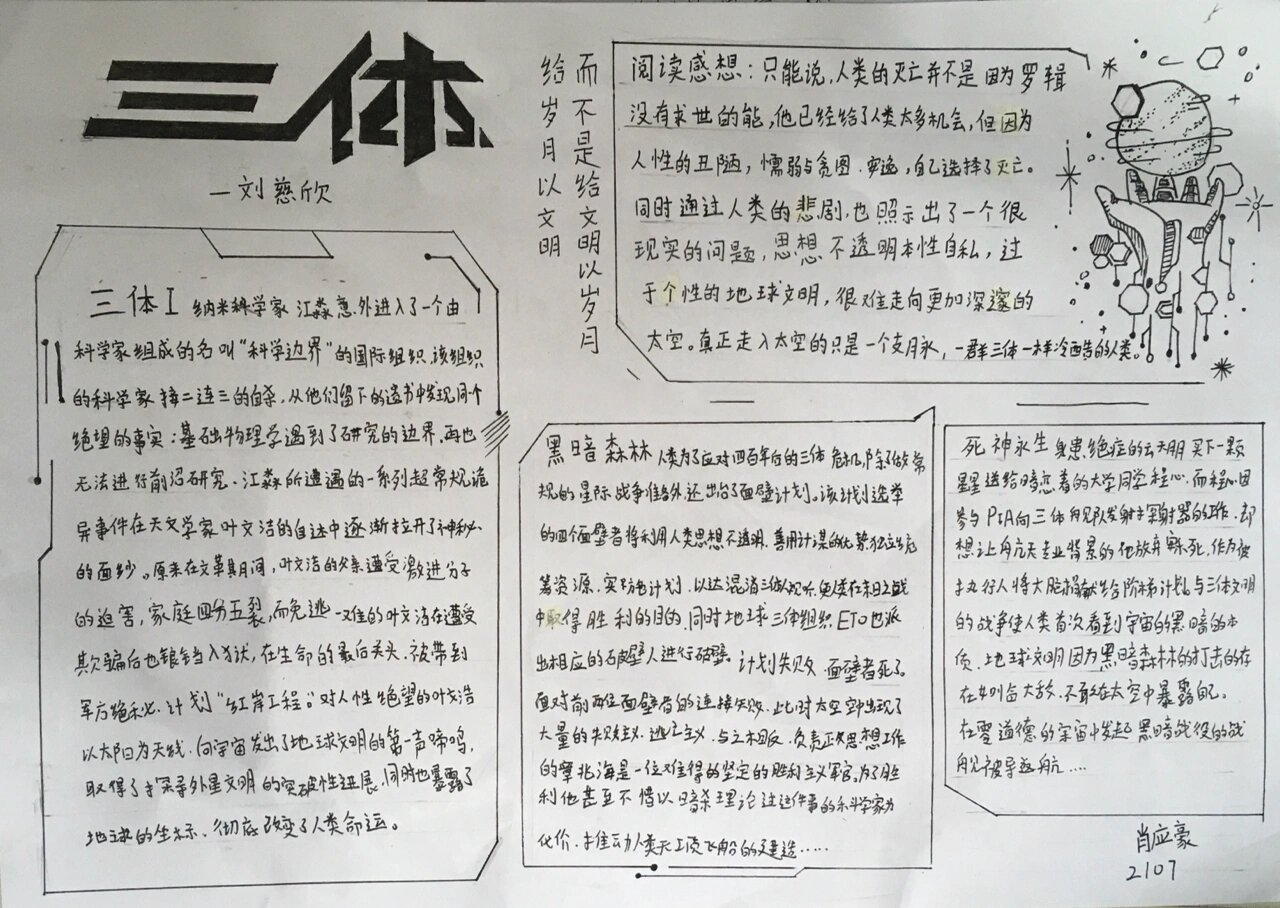 三体
—刘慈欣
给岁月以文明
而不是给文明以岁月
阅读感想：只能说，人类的灭亡并不是因为罗辑
没有求世的能，他已经给了人类太多机会，但因为
人性的丑陋，懦弱与贪图 安逸，自己选择了灭亡。
同时通过人类的悲剧，也照示出了一个很
现实的问题，思想 不透明本性自私，过
于个性的地球文明，很难走向更加深邃的
太空。真正走入太空的只是一个支月永，一群三体一样冷酷的人类。
三体I 纳米科学家 江淼意外进入了一个由
科学家组成的名叫“科学边界”的国际组织，该组织
的科学家接二连三的自杀，从他们留下的遗书中发现同个
绝望的事实：基础物理学遇到了研究的边界，再也
无法进行前沼研究、江淼所遭遇的一系列超常规诡
异事件在天文学家叶文洁的自述中逐渐拉开了神秘
的面纱。原来在文革期间，叶文洁的父亲遭受激进分子
的迫害，家庭四分五裂，而免逃一难的叶文洁在遭受
欺骗后也锒铛入狱，在生命的最后关头，被带到
军方绝秘计划“红岸工程”。对人性绝望的叶文洁
以太阳为天线，向宇宙发出了地球文明的第一声啼鸣，
取得了探寻外星文明的突破性进展，同时也暴露了
地球的坐标、彻底改变了人类命运。
黑暗森林 人类为了应对四百年后的三体危机，除了做常
规的星际战争准备外，还出台了面壁计划。该计划选举
的四个面壁者将利用人类思想不透明，善用计谋的优势独立统
筹资源，实施计划，以达混淆三体人视听，使人类在末日之战
中取得胜利的目的，同时地球三体组织ETO也派
出相应的破壁人进行破壁 计划失败，面壁者死了。
面对前两位面壁者的连接失败，此时太空中出现了
大量的失败主义、逃亡主义，与之相反，负责正次思想工作
的章北海是一位难得的坚定的胜利主义军官，为了胜
利他甚至不惜以暗杀理论过这件事的科学家为
代价，推动人类无工质飞船的建造……
死神永生 身患绝症的云天明 买下一颗
星星送给暗恋着的大学同学程心，而程心因
参与PIA向三体舰队发射探射器的工作，却
想让航天专业背景的他放弃安乐死，作为被
执行人将大脑捐献给阶梯计划。与三体文明
的战争使人类首次看到宇宙的黑暗的本
质，地球文明因为黑暗森林的打击的存
在如临大敌，不敢在太空中暴露自己。
在零道德的宇宙中发起黑暗战役的战
舰被导返航……
肖应豪
2107